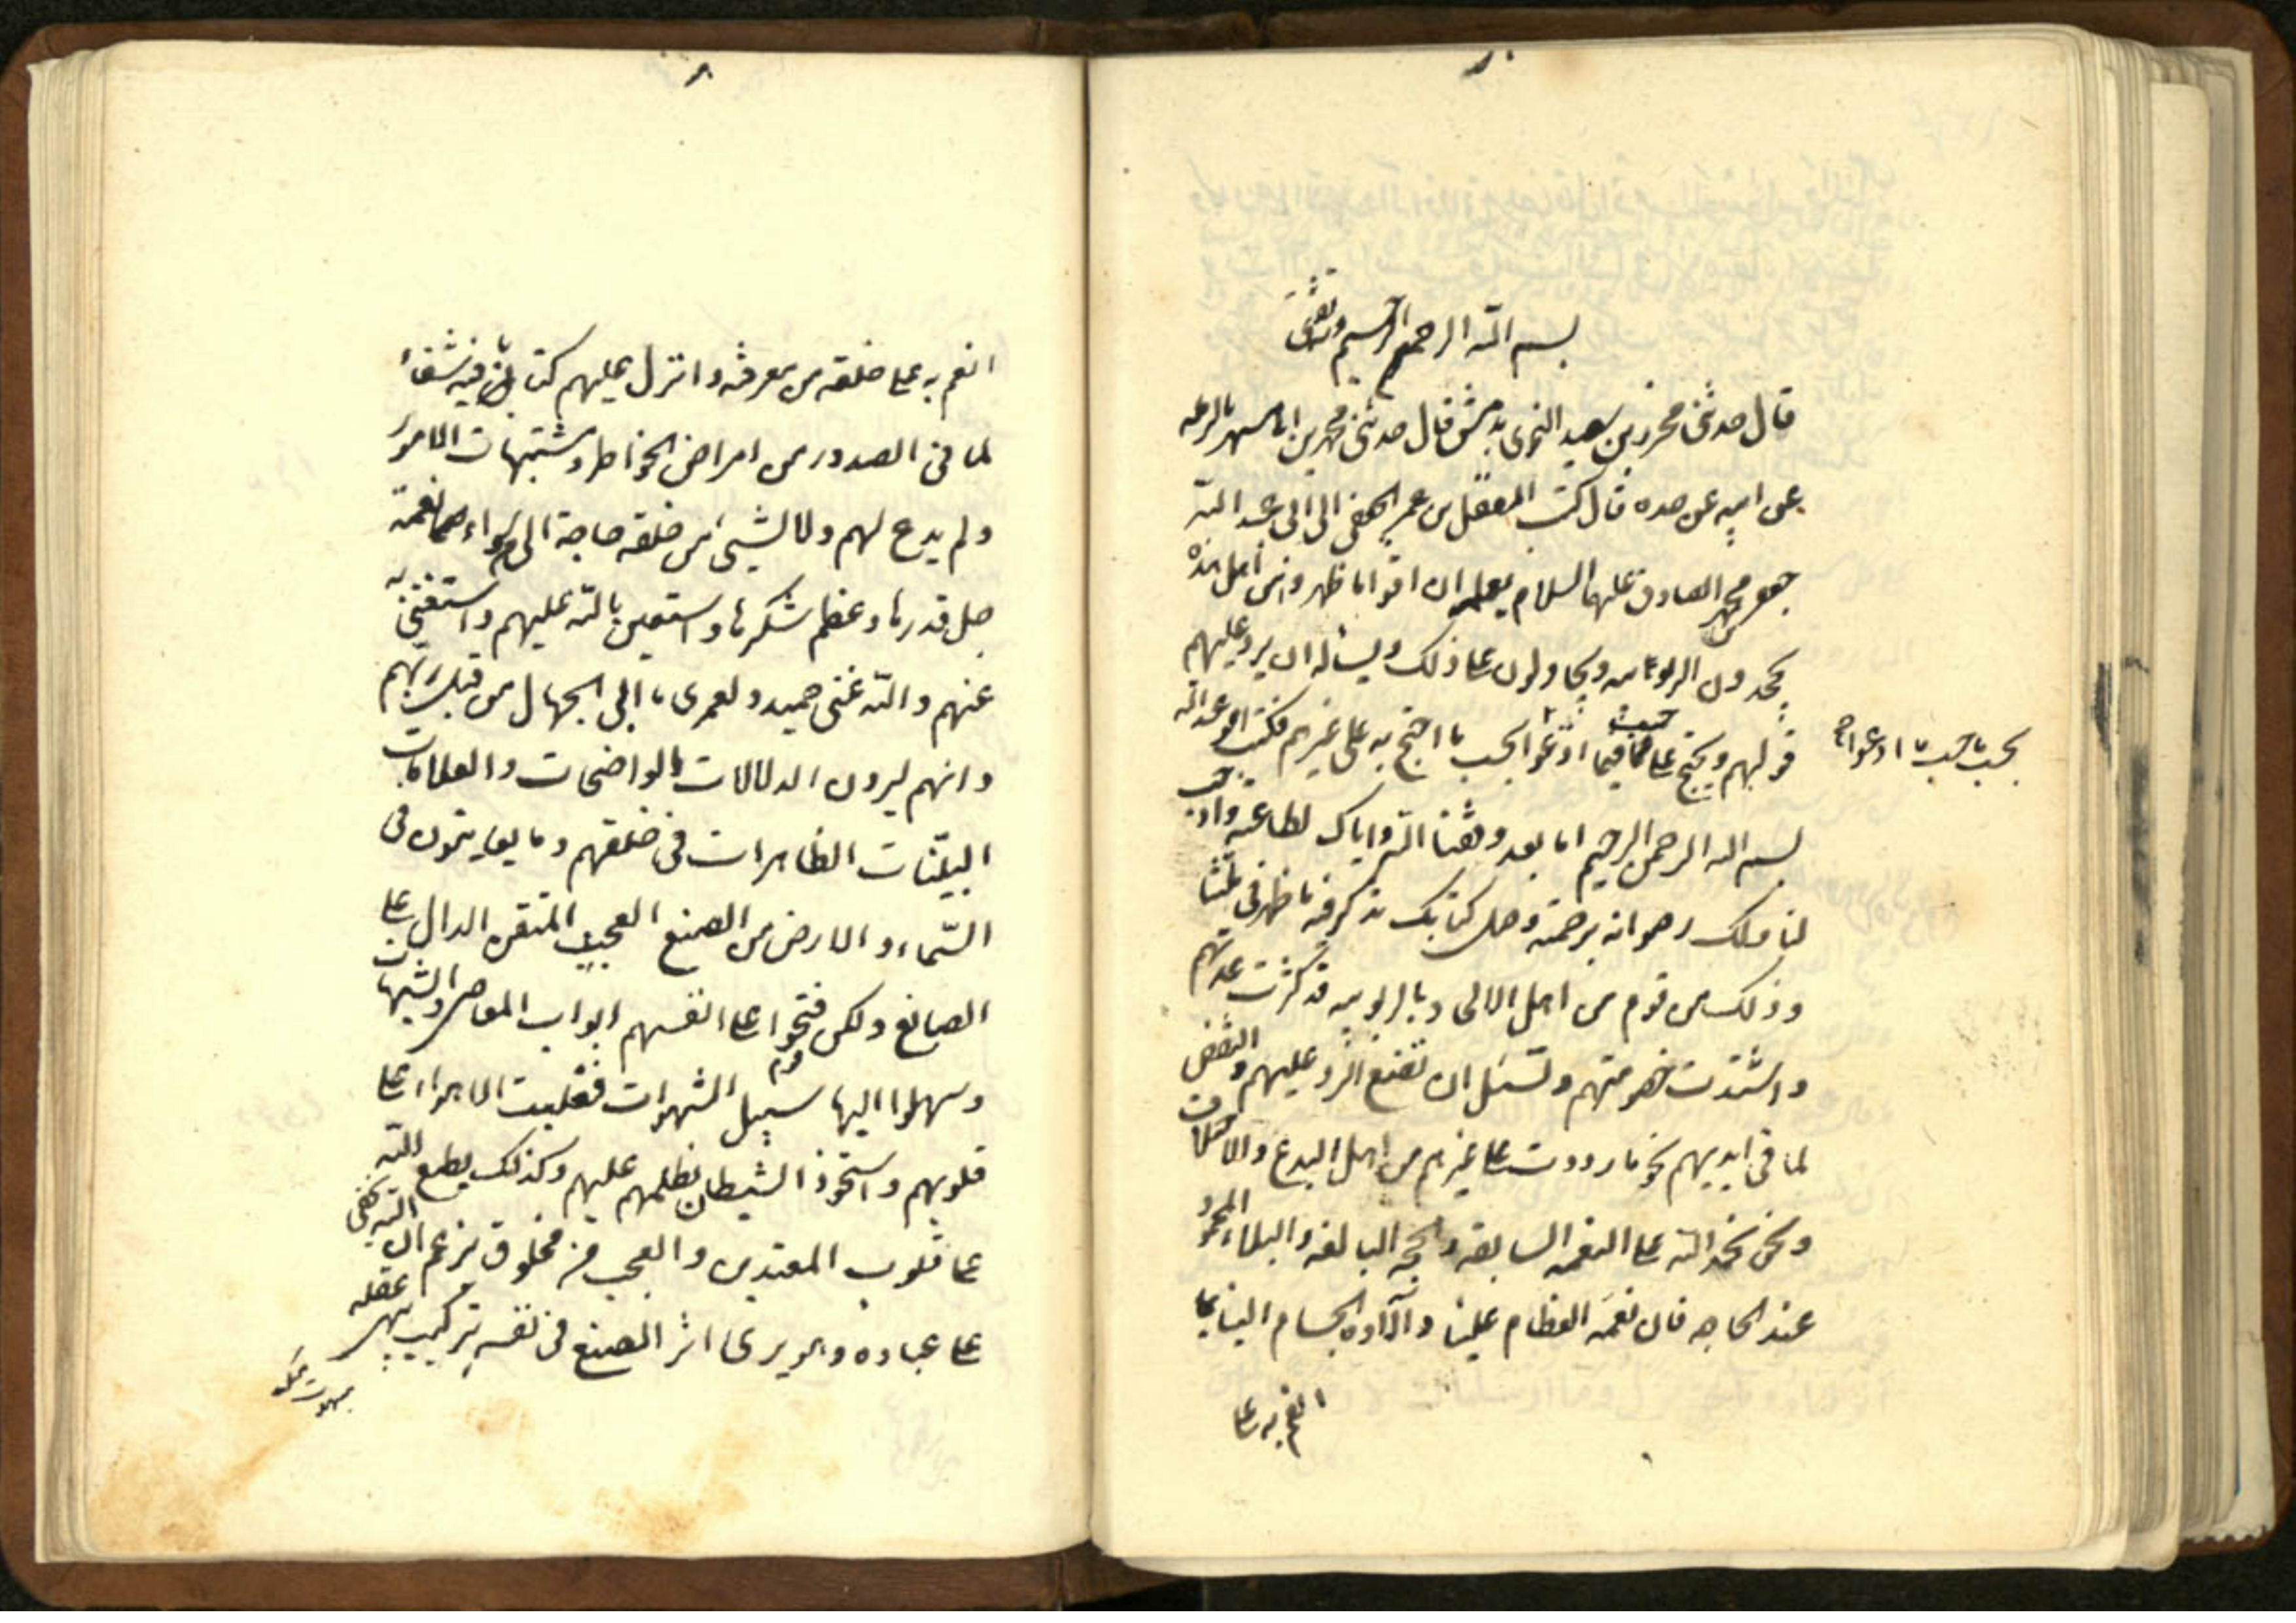 بسم اللّه الرحمن الرحيم وبه ثقتى
قال حدثنى محرز بن سعيد النحوى بدمشق قال حدثنى محمد بن ابى مسهر بالرمله
عن ابيه عن جده قال كتب المفضل بن عمر الجعفى الى ابى عبد اللّه
جعفر بن محمد الصادق عليهما السلام يعلمه ان اقواما ظهروا من اهل هذه
يجحدون الربوبيه ويجادلون على ذلك ويسأله ان يرد عليهم
قولهم ويحتج عليهم فيما ادّعوا بحسب ما احتج به على غيرهم فكتب ابو عبد اللّه
بحسب ما ادعوا
بسم اللّه الرحمن الرحيم اما بعد وفقنا اللّه واياك لطاعته واوجب
لنا بذلك رضوانه برحمته وصل كتابك تذكر فيه ما ظهر فى ملتنا
وذلك من قوم من اهل الالحاد بالربوبيه قد كثرت عدتهم
واشتدت خصومتهم وتسئل ان نصنع الرد عليهم والنقض
لما فى ايديهم نحو ما رددت على غيرهم من اهل البدع والاختلاف
ونحن نحمد اللّه على النعمه السابغه والحجه البالغه والبلاء المحمود
عند الخاصه فان نعمه العظام علينا وآلاءه الجسام الينا بما
انعم به على
انعم به على خلقه من معرفته وانزل عليهم كتابا فيه شفاء
لما فى الصدور من امراض الخواطر ومشتبهات الامور
ولم يدع لهم ولا لشيئ من خلقه حاجة الى من سواه نعمة
جل قدرها وعظم شكرها واستعين باللّه عليهم واستغنى به
عنهم واللّه غنى حميد ولعمرى ما اتى الجهال من قبل ربهم
وانهم ليرون الدلالات بالواضحات والعلامات
البيّنات الظاهرات فى خلقهم وما يعاينون فى
السّماء والارض من الصنع العجيب المتقن الدال على
الصانع ولكن قوم فتحوا على انفسهم ابواب المعاصى والشبهات
وسهلوا اليها سبيل الشهوات فغلبت الاهواء على
قلوبهم واستحوذ الشيطان بظلمهم عليهم وكذلك يطبع اللّه
على قلوب المعتدين والعجب من مخلوق يزعم ان اللّه يخفى
على عباده وهو يرى اثر الصنع فى نفسه بتركيب يبهر عقله